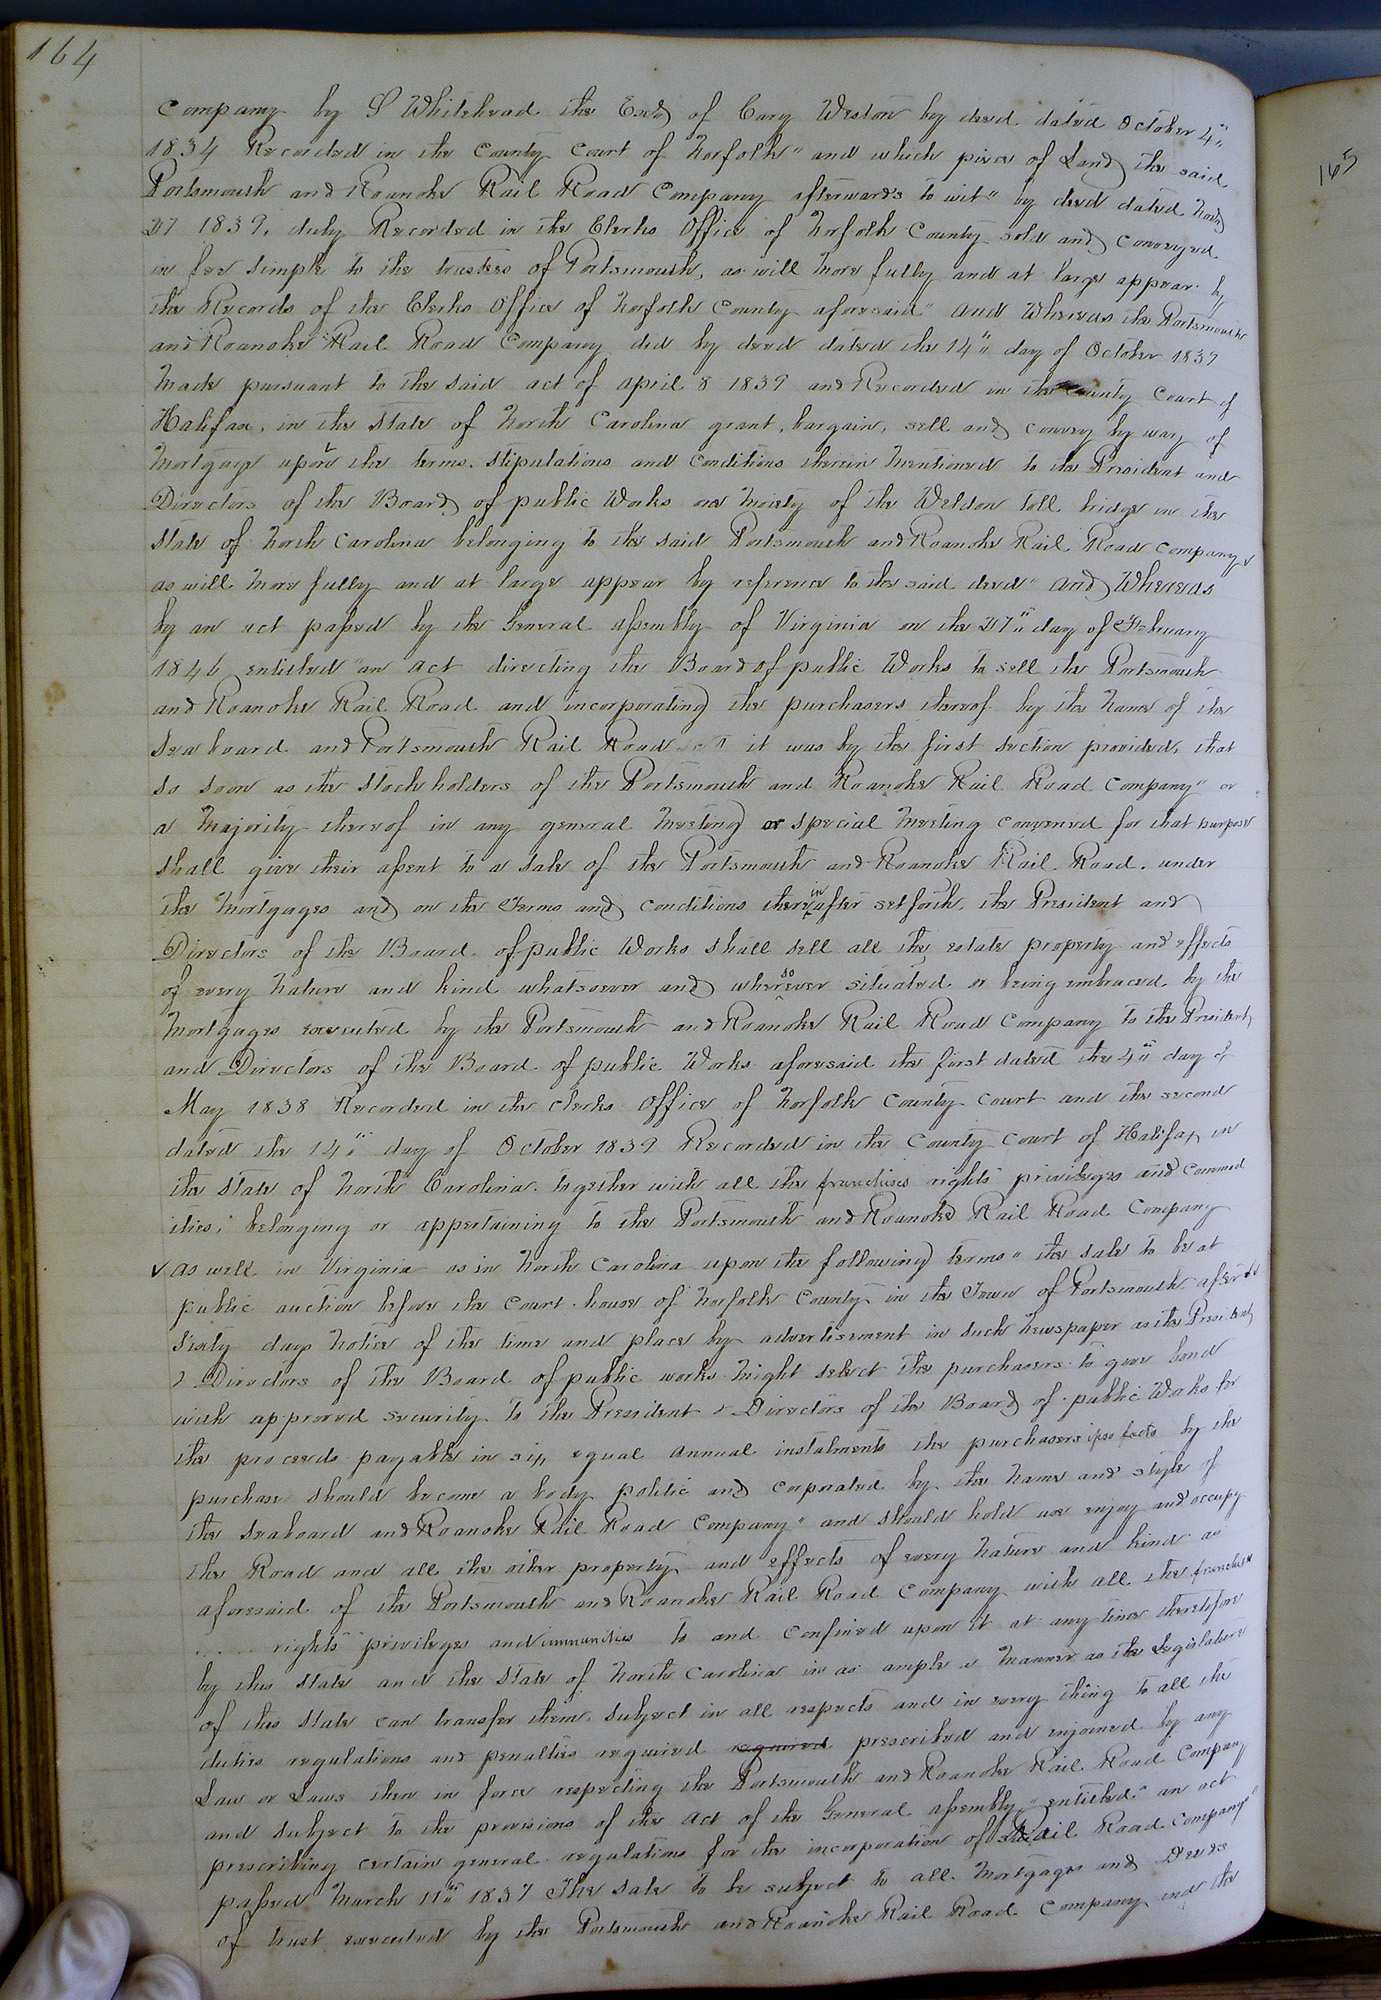 164
Company by S Whitehead the Exd of Cary Weston by deed dated October 4"
1834 Recorded in the County Court of Norfolk" and which piece of Land the said
Portsmouth and Roanoke Rail Road Company afterwards to wit" by deed dated
27 1839, duly Recorded in the Clerks Office of Norfolk County sold and conveyed
in fee simple to the trustees of Portsmouth, as will more fully and at large appear by
the Records of the Clerks Office of Norfolk County aforesaid" and Whereas the Portsmouth
and Roanoke Rail Road Company did by deed dated the 14" day of October 1839
made pursuant to the said act of april 8 1839 and Recorded in the County Court of
Halifax, in the State of North Carolina grant, bargain, sell and convey by way of
mortgage upon the terms, stipulations and conditions therein mentioned to the President and
Directors of the Board of public Works one moiety of the Weldon toll bridge in the
State of North Carolina belonging to the said Portsmouth and Roanoke Rail Road Company
as will more fully and at large appear by reference to the said deed" and Whereas
by an act passed by the General assembly of Virginia on the 27" day of February
1846 entitled "an act directing the Board of public Works to sell the Portsmouth
and Roanoke Rail Road and incorporating the purchasers thereof by the name of the
Seaboard and Portsmouth Rail Road it was by the first section provided, that
so soon as the Stockholders of the Portsmouth and Roanoke Rail Road Company" or
a majority thereof in any general meeting or special meeting convened for that purpose
shall give their assent to a sale of the Portsmouth and Roanoke Rail Road. under
the mortgages and on the Terms and conditions thereinafter setforth, the President and
Directors of the Board of public Works shall sell all the estate property and effects
of every nature and kind whatsoever and wheresoever situated or being embraced by the
mortgages executed by the Portsmouth and Roanoke Rail Road Company to the President
and Directors of the Board of public Works aforesaid the first dated the 4" day of
May 1838 Recorded in the clerks Office of Norfolk County Court and the second
dated the 14" day of October 1839 Recorded in the County Court of Halifax in
the State of North Carolina. together with all the franchises rights privileges and Commod
ities, belonging or appertaining to the Portsmouth and Roanoke Rail Road Company
as well in Virginia as in North Carolina upon the following terms" the sale to be at
public auction before the Court house of Norfolk County in the Town of Portsmouth after
Sixty days notice of the time and place by advertisement in such newspaper as the President
& Directors of the Board of public works might select the purchasers to give bond
with approved security to the President & Directors of the Board of public Works for
the proceeds payable in six equal annual instalments the purchasers ipso facto by the
purchase should become a body politic and corporated by the name and style of
the Seaboard and Roanoke Rail Road Company" and should hold use enjoy and occupy
the Road and all the other property and effects of every nature and kind as
aforesaid of the Portsmouth and Roanoke Rail Road Company with all the franchises
rights privileges and immunities to and confined upon it at any time theretofore
by this State and the State of North Carolina in as ample a manner as the Legislature
of this State can transfer them. Subject in all respects and in every thing to all the
duties regulations and penalties required required prescribed and enjoined by any
Law or Laws then in force respecting the Portsmouth and Roanoke Rail Road Company
and subject to the provisions of the act of the General assembly" entitled "an act
prescribing certain general regulations for the incorporation of Rail Road Company"
passed March 11" 1837 The Sale to be subject to all mortgages and Deeds
of trust executed by the Portsmouth and Roanoke Rail Road Company and the
165